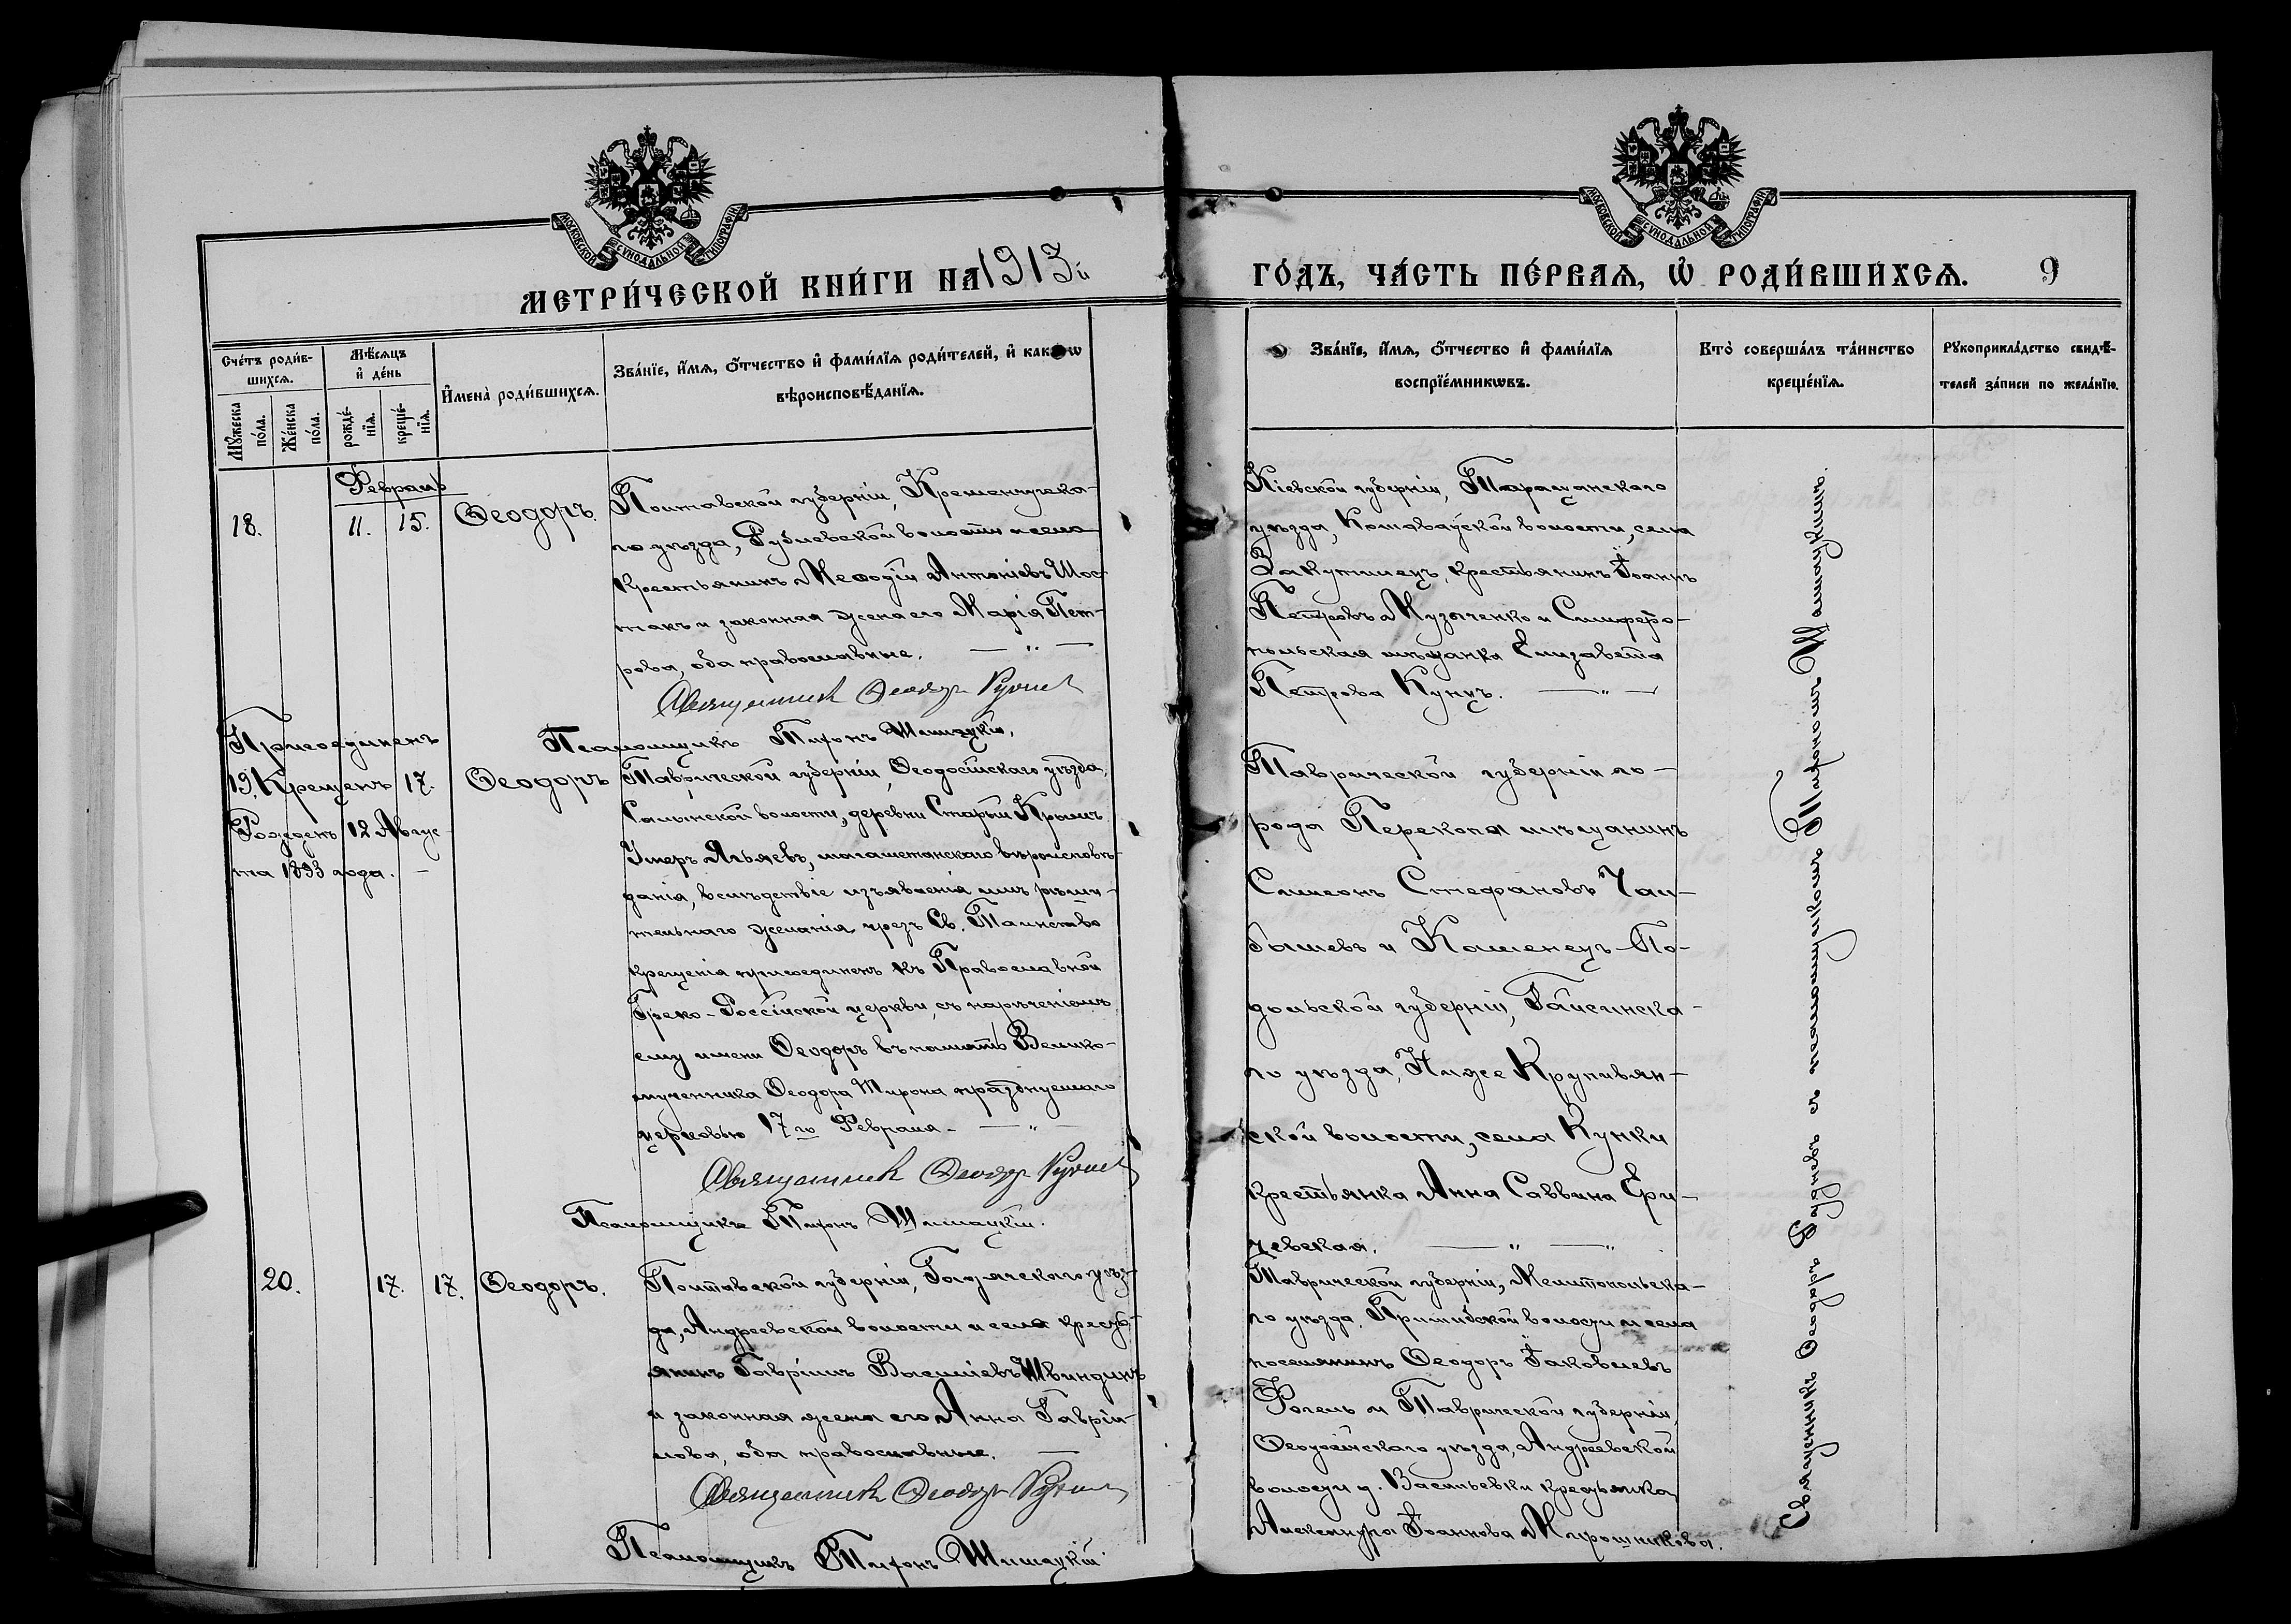 МОСКОВСКОЙ СѴНОДАЛЬНОЙ ТИПОГРАФІИ
МЕТРИ́ЧЕСКОЙ КНИ́ГИ НА 1913й
Сче́тъ роди́в-
шихсѧ.
Мꙋ́жеска
по́ла.
Же́нска
по́ла.
Мѣ́сѧцъ
и҆ де́нь
рожде́-
нїѧ.
креще́-
нїѧ.
И҆мена̀ роди́вшихсѧ.
Зва́нїе, и҆́мѧ, ѻ҆́тчество и҆ фами́лїѧ роди́телей, и҆ како́гѡ
вѣроисповѣ́данїѧ.
Февраль
18.
11.
15.
Ѳеодоръ.
Полтавской губерніи, Кременчугска-
го уѣзда, Рублевской волости и села
крестьянинъ Меѳодій Антоніевъ Шос-
такъ и законная жена его Марія Пет-
рова, оба православные. — „ —
Священник Ѳеодор
Псаломщикъ Тихонъ Шишацкій.
Присоединенъ
19. Крещенъ 17.
Рожденъ 12 Авгус-
та 1893 года. —
Ѳеодоръ
Таврической губерніи, Ѳеодосійскаго уѣзда,
Салынской волости, деревни Старый Крымъ
Умеръ Ягьяевъ, магометанскаго вѣроисповѣ-
данія, вслѣдствіе изъявленія имъ рѣши-
тельнаго желанія чрезъ Св. Таинство
крещенія присоединенъ къ Православной
Греко-Россійской церкви, съ нареченіемъ
ему имени Ѳеодоръ въ память Велико-
мученника Ѳеодора Тирона празднуемаго
церковью 17го Февраля. — „ —
Священник Ѳеодор
Псаломщикъ Тихонъ Шишацкій.
20.
17.
17.
Ѳеодоръ.
Полтавской губерніи, Гадячскаго уѣз-
да, Андреевской волости и села кресть-
янинъ Гавріилъ Василіевъ Швиндинъ
и законная жена его Анна Гаврі-
лова, оба православные. —
Священник Ѳеодор
Псаломщикъ Тихонъ Шишацкій
МОСКОВСКОЙ СѴНОДАЛЬНОЙ ТИПОГРАФІИ
ГО́ДЪ, ЧА́СТЬ ПЕ́РВАѦ, Ѡ҆ РОДИ́ВШИХСѦ. 9
Зва́нїе, и҆́мѧ, ѻ҆́тчество и҆ фами́лїѧ
воспрїе́мникѡвъ.
Кто̀ соверша́лъ та́инство
креще́нїѧ.
Рꙋкоприкла́дство свидѣ́-
телей за́писи по жела́нїю.
Кіевской губерніи, Таращанскаго
уѣзда, села
крестьянинъ Іоаннъ
Петровъ Музыченко и Симферо-
польская мѣщанка Елизавета
Петрова Кунцъ. — „ —
Таврической губерніи го-
рода Перекопа мѣщанинъ
Симеонъ Стефановъ Чал-
бышевъ и Каменецъ-По-
дольской губерніи, Гайсинска-
го уѣзда, Ниже Крупивян-
ской волости, села Кунки
крестьянка Анна Саввина Гри-
чевская. — „ — „
Таврической губерніи, Мелитопольска-
го уѣзда, Пришибской волости и села
поселянинъ Ѳеодоръ Іаковлевъ
Фогель и Таврической губерніи,
Ѳеодосійскаго уѣзда, Андреевской
волости д. Васильевки крестьянка
Александра Іоаннова Мирошникова.
Священникъ Ѳеодоръ съ псаломщикомъ Тихономъ Шишацкимъ.